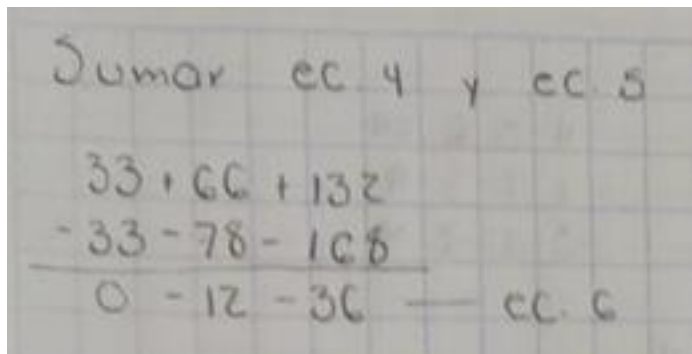 Sumar ec 4 y ec. 5
33 + 66 + 132
- 33 - 78 - 168
0 - 12 - 36 — ec. 6